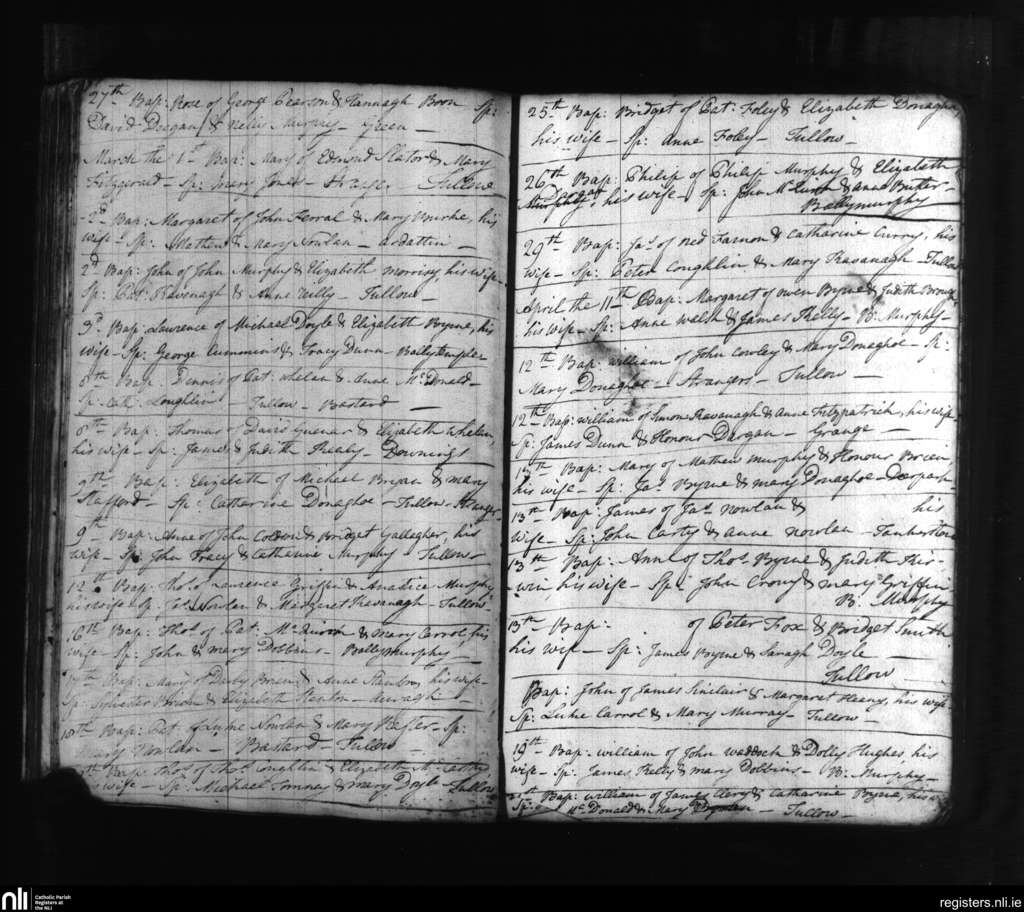 27th Bap: Rose of George Pearson & Hannagh Boon Sp:
David Deegan & Nelly Murphy - Green -
March the 1st Bap: Mary of Edmond Slator & Mary
Fitzgerald - Sp: Mary Jones - Tullow
2d Bap: Margaret of John & Mary Rourke, his
wife - Sp: Mathew & Mary Nowlan - Ardattin -
2d Bap: John of John Murphy & Elizabeth his wife -
Sp: Pat: Kavenagh & Anne Neilly - Tullow -
3d Bap: Laurence of Michael Doyle & Elizabeth Byrne, his
wife - Sp: George Cummins & Tracy Dunn - Ballytemple
8th Bap: Dennis of Pat: Whelan & Anne McDonald -
Sp: Cath: Loughlin Tullow - Bastard -
8th Bap: Thomas of David & Elizabeth Whelan,
his wife - Sp: James & Judith Healy - Downings
9th Bap: Elizabeth of Michael Bryan & Mary
Stafford - Sp: Catharine Donaghoe - Tullow - Stranger
9th Bap: Anne of John & Bridget Gallagher, his
wife - Sp: John Tracy & Catharine Murphy Tullow
12th Bap: Thos. Laurence Griffin & Murphy
his wife Sp: Jas. Nowlan & Margaret Kavanagh - Tullow -
16th Bap: Thos. of Pat: & Mary Carrol his
wife - Sp: John & Mary Dobbins - Ballymurphy -
Bap: Mary of Darby Brien & Anne his wife -
Sp: Sylvester Brien & Elizabeth
18th Bap: Pat of Luke Nowlan & Mary Sp:
Mary Nowlan - Bastard - Tullow -
Bap: Thos. of Thos. Coughlin & Elizabeth
his wife - Sp: Michael & Mary Doyle - Tullow
25th Bap: Bridget of Pat: Foley & Elizabeth Donaghoe
his wife - Sp: Anne Foley - Tullow -
26th Bap: Philip of Philip Murphy & Elizabeth
his wife - Sp: John & Anne Butler -
Ballymurphy -
29th Bap: Jas. of Ned Farnon & Catharine Curry, his
wife - Sp: Peter Coughlin & Mary Kavanagh - Tullow
April the 11th Bap: Margaret of Owen Byrne & Judith
his wife - Sp: Anne Walsh & James Kelly - B: Murphy -
12th Bap: William of John Cowley & Mary Donaghoe - Sp:
Mary Donaghoe - Strangers - Tullow -
12th Bap: William of Simon Kavanagh & Anne Fitzpatrick, his wife
Sp: James Dunn & Honour Dargan - Grange -
Bap: Mary of Mathew Murphy & Honour Breen
his wife - Sp: Jas. Byrne & Mary Donaghoe - Deerpark
13th Bap: James of Jas. Nowlan & his
wife - Sp: John Carty & Anne Nowlan Tankerstone
13th Bap: Anne of Thos. Byrne & Judith Kir-
-win his wife - Sp: John Crowy & Mary Griffin
B: Murphy
13th - Bap: of Peter Fox & Bridget Smith
his wife - Sp: James Byrne & Saragh Doyle -
Tullow
Bap: John of James Sinclair & Margaret Heany, his wife
Sp: Luke Carrol & Mary Murray - Tullow -
19th Bap: William of John Waddock & Dolly Hughes, his
wife - Sp: James Kelly & Mary Dobbins - B: Murphy -
Bap: William of James Clery & Catharine Byrne, his wife
Sp: McDonald & Mary - Tullow -
nli
Catholic Parish
Registers at
the NLI
registers.nli.ie